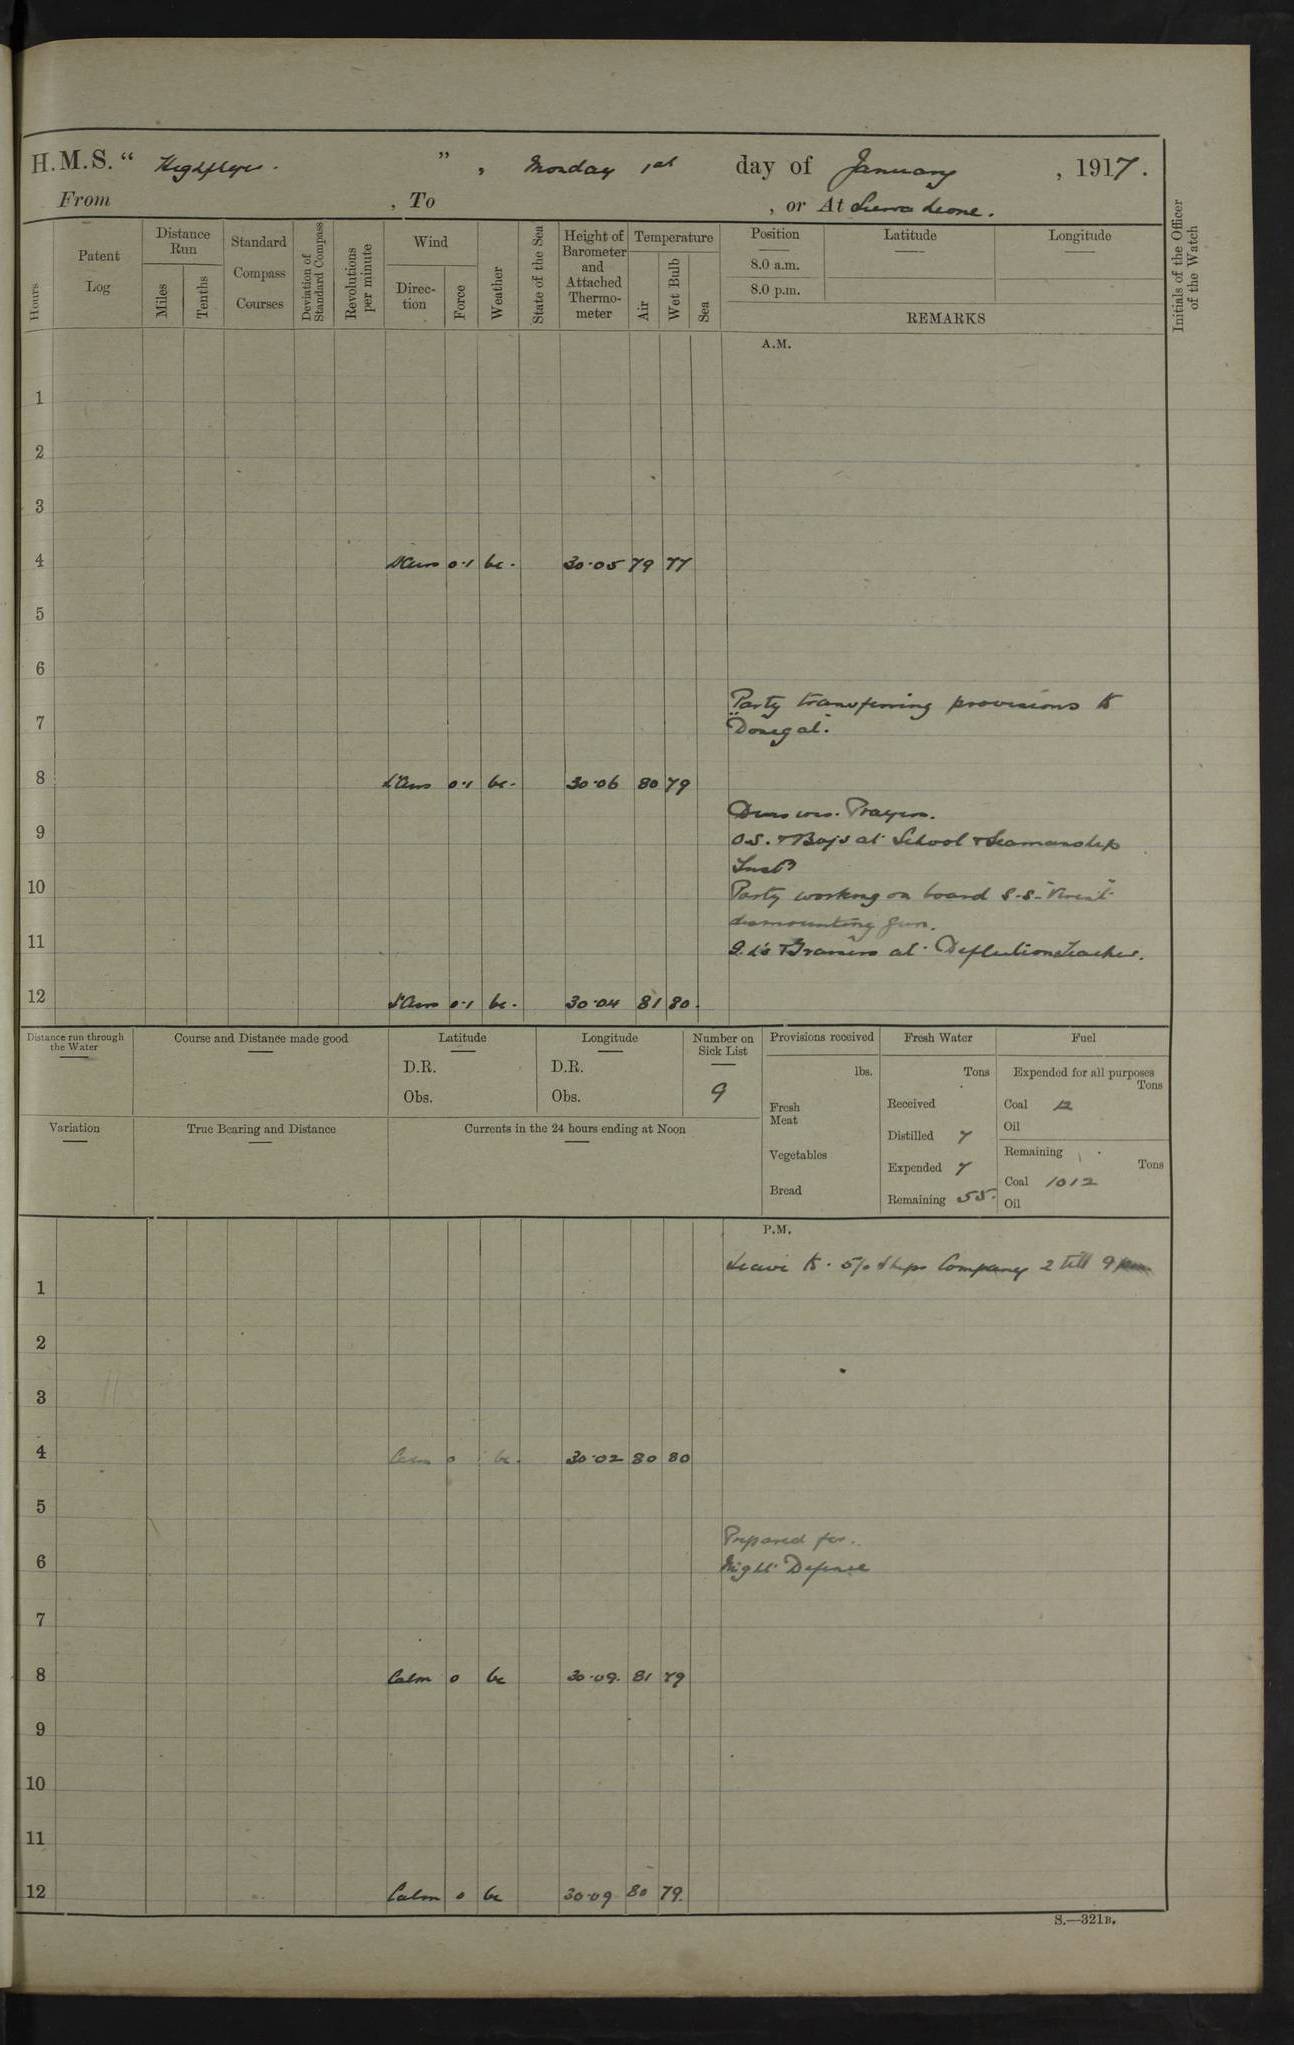 H.M.S. " Highflyer. " , Monday 1st day of January , 1917.
From , To , or At Sierra Leone.
Hours
Patent Log
Distance Run
Miles
Tenths
Standard Compass Courses
Deviation of Standard Compass
Revolutions per minute
Wind
Direction
Force
Weather
State of the Sea
Height of Barometer and Attached Thermometer
Temperature
Air
Wet Bulb
Sea
Position
8.0 a.m.
8.0 p.m.
Latitude
Longitude
REMARKS
Initials of the Officer of the Watch
A.M.
1
2
3
4 0·1 bc. 30·05 79 77
5
6
Party transferring provisions to
7
"Donegal".
8 0·1 bc. 30·06 80 79
Divisions. Prayers.
9
O.S. & Boys at School & Seamanship
Instn
10
Party working on board S.S.
dismounting gun.
11
G.L's & Trainers at Deflection Teacher.
12 0·1 bc. 30·04 81 80.
Distance run through the Water
Course and Distance made good
Latitude
D.R.
Obs.
Longitude
D.R.
Obs.
Number on Sick List
9
Provisions received
lbs.
Fresh Meat
Vegetables
Bread
Fresh Water
Tons
Received
Distilled 7
Expended 7
Remaining 55.
Fuel
Expended for all purposes
Tons
Coal 12
Oil
Remaining
Tons
Coal 1012
Oil
Variation
True Bearing and Distance
Currents in the 24 hours ending at Noon
P.M.
Leave to Ships Company 2 till 9 pm
1
2
3
4 Calm 0 bc. 30·02 80 80
5
Prepared for.
6
Night Defence
7
8 Calm 0 bc 30·09. 81 79
9
10
11
12 Calm 0 bc 30·09 80 79.
S.—321B.